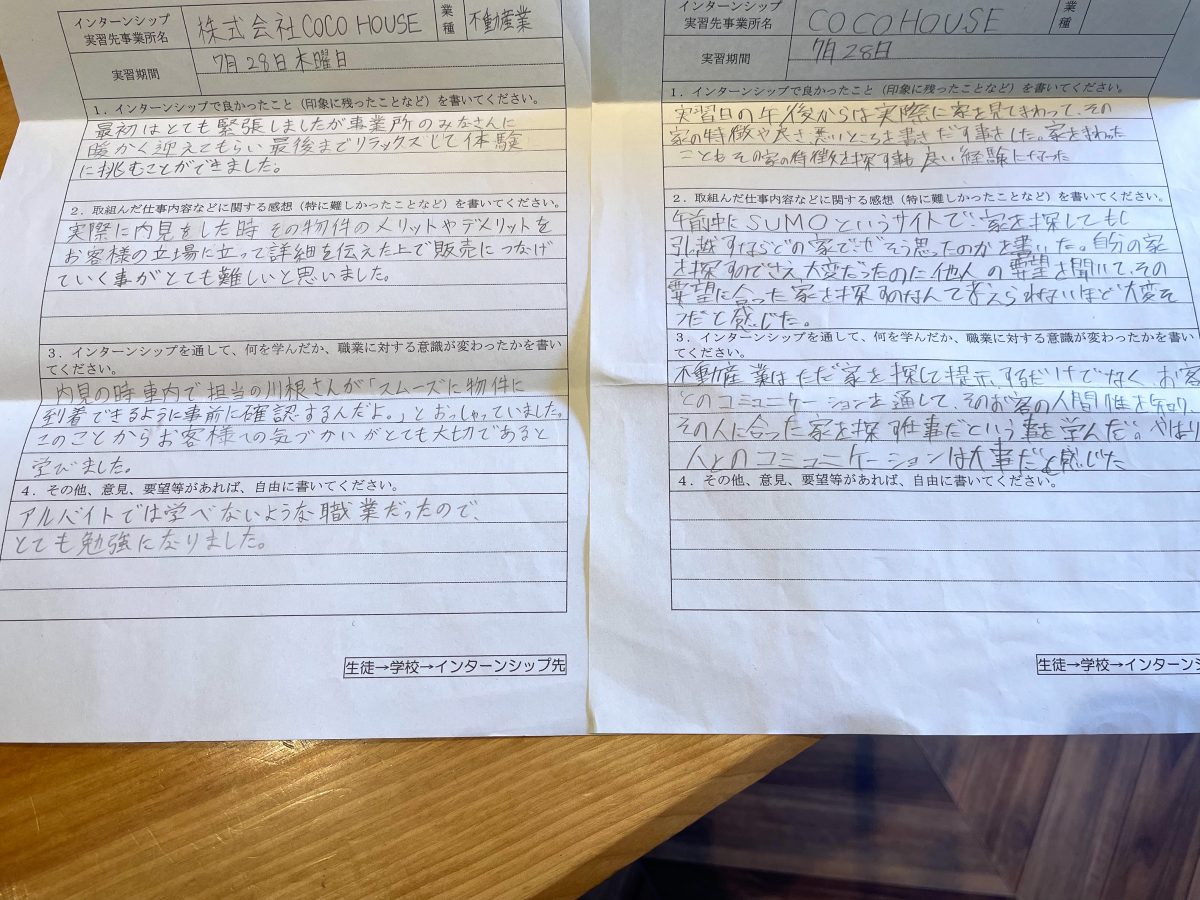 インターンシップ
実習先事業所名
株式会社COCO HOUSE
業種
不動産業
実習期間
7月28日木曜日
1．インターンシップで良かったこと（印象に残ったことなど）を書いてください。
最初はとても緊張しましたが事業所のみなさんに
暖かく迎えてもらい最後までリラックスして体験
に挑むことができました。
2．取組んだ仕事内容などに関する感想（特に難しかったことなど）を書いてください。
実際に内見をした時その物件のメリットやデメリットを
お客様の立場に立って詳細を伝えた上で販売につなげ
ていく事がとても難しいと思いました。
3．インターンシップを通して、何を学んだか、職業に対する意識が変わったかを書い
てください。
内見の時車内で担当の川根さんが「スムーズに物件に
到着できるように事前に確認するんだよ。」とおっしゃっていました。
このことからお客様への気づかいがとても大切であると
学びました。
4．その他、意見、要望等があれば、自由に書いてください。
アルバイトでは学べないような職業だったので、
とても勉強になりました。
生徒→学校→インターンシップ先
インターンシップ
実習先事業所名
COCO HOUSE
業種
実習期間
7月28日
1．インターンシップで良かったこと（印象に残ったことなど）を書いてください。
実習日の午後からは実際に家を見てまわって、その
家の特徴や良さ、悪いところを書きだす事をした。家をまわった
こともその家の特徴を探す事も良い経験になった
2．取組んだ仕事内容などに関する感想（特に難しかったことなど）を書いてください。
午前中にSUMOというサイトで家を探してもし
引越すならどの家でなぜそう思ったのかを書いた。自分の家
を探すのでさえ大変だったのに他人の要望を聞いて、その
要望に合った家を探すのなんて考えられないほど大変そ
うだと感じた。
3．インターンシップを通して、何を学んだか、職業に対する意識が変わったかを書い
てください。
不動産業はただ家を探して提示するだけでなく、お客
とのコミュニケーションを通して、そのお客の人間性を知り、
その人に合った家を探す仕事だという事を学んだ。やはり
人とのコミュニケーションは大事だと感じた
4．その他、意見、要望等があれば、自由に書いてください。
生徒→学校→インターンシ